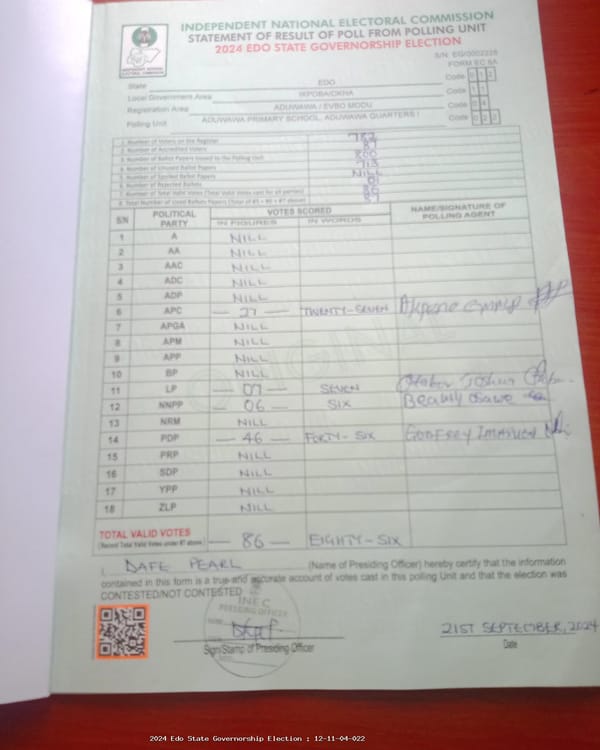 INDEPENDENT NATIONAL ELECTORAL COMMISSION
STATEMENT OF RESULT OF POLL FROM POLLING UNIT
2024 EDO STATE GOVERNORSHIP ELECTION
S/N: EG/0002228
FORM EC 8A
State EDO Code 012
Local Government Area IKPOBA/OKHA Code 11
Registration Area ADUWAWA / EVBO MODU Code 04
Polling Unit ADUWAWA PRIMARY SCHOOL, ADUWAWA QUARTERS I Code 022
1. Number of Voters on the Register 782
2. Number of Accredited Voters 87
3. Number of Ballot Papers Issued to the Polling Unit 800
4. Number of Unused Ballot Papers 713
5. Number of Spoiled Ballot Papers NILL
6. Number of Rejected Ballots 01
7. Number of Total Valid Votes (Total Valid Votes cast for all parties) 86
8. Total Number of Used Ballots Papers (Total of #5 + #6 + #7 above) 87
S/N POLITICAL PARTY VOTES SCORED NAME/SIGNATURE OF POLLING AGENT
IN FIGURES IN WORDS
1 A NILL
2 AA NILL
3 AAC NILL
4 ADC NILL
5 ADP NILL
6 APC 27 TWENTY-SEVEN
7 APGA NILL
8 APM NILL
9 APP NILL
10 BP NILL
11 LP 07 SEVEN Joshua
12 NNPP 06 SIX
13 NRM NILL
14 PDP 46 FORTY-SIX GODFREY
15 PRP NILL
16 SDP NILL
17 YPP NILL
18 ZLP NILL
TOTAL VALID VOTES 86 EIGHTY-SIX
(Record Total Valid Votes under #7 above)
I, DAFE PEARL (Name of Presiding Officer) hereby certify that the information
contained in this form is a true and accurate account of votes cast in this polling Unit and that the election was
CONTESTED/NOT CONTESTED
INEC
PRESIDING OFFICER
21ST SEPTEMBER, 2024
Sign/Stamp of Presiding Officer Date
2024 Edo State Governorship Election : 12-11-04-022